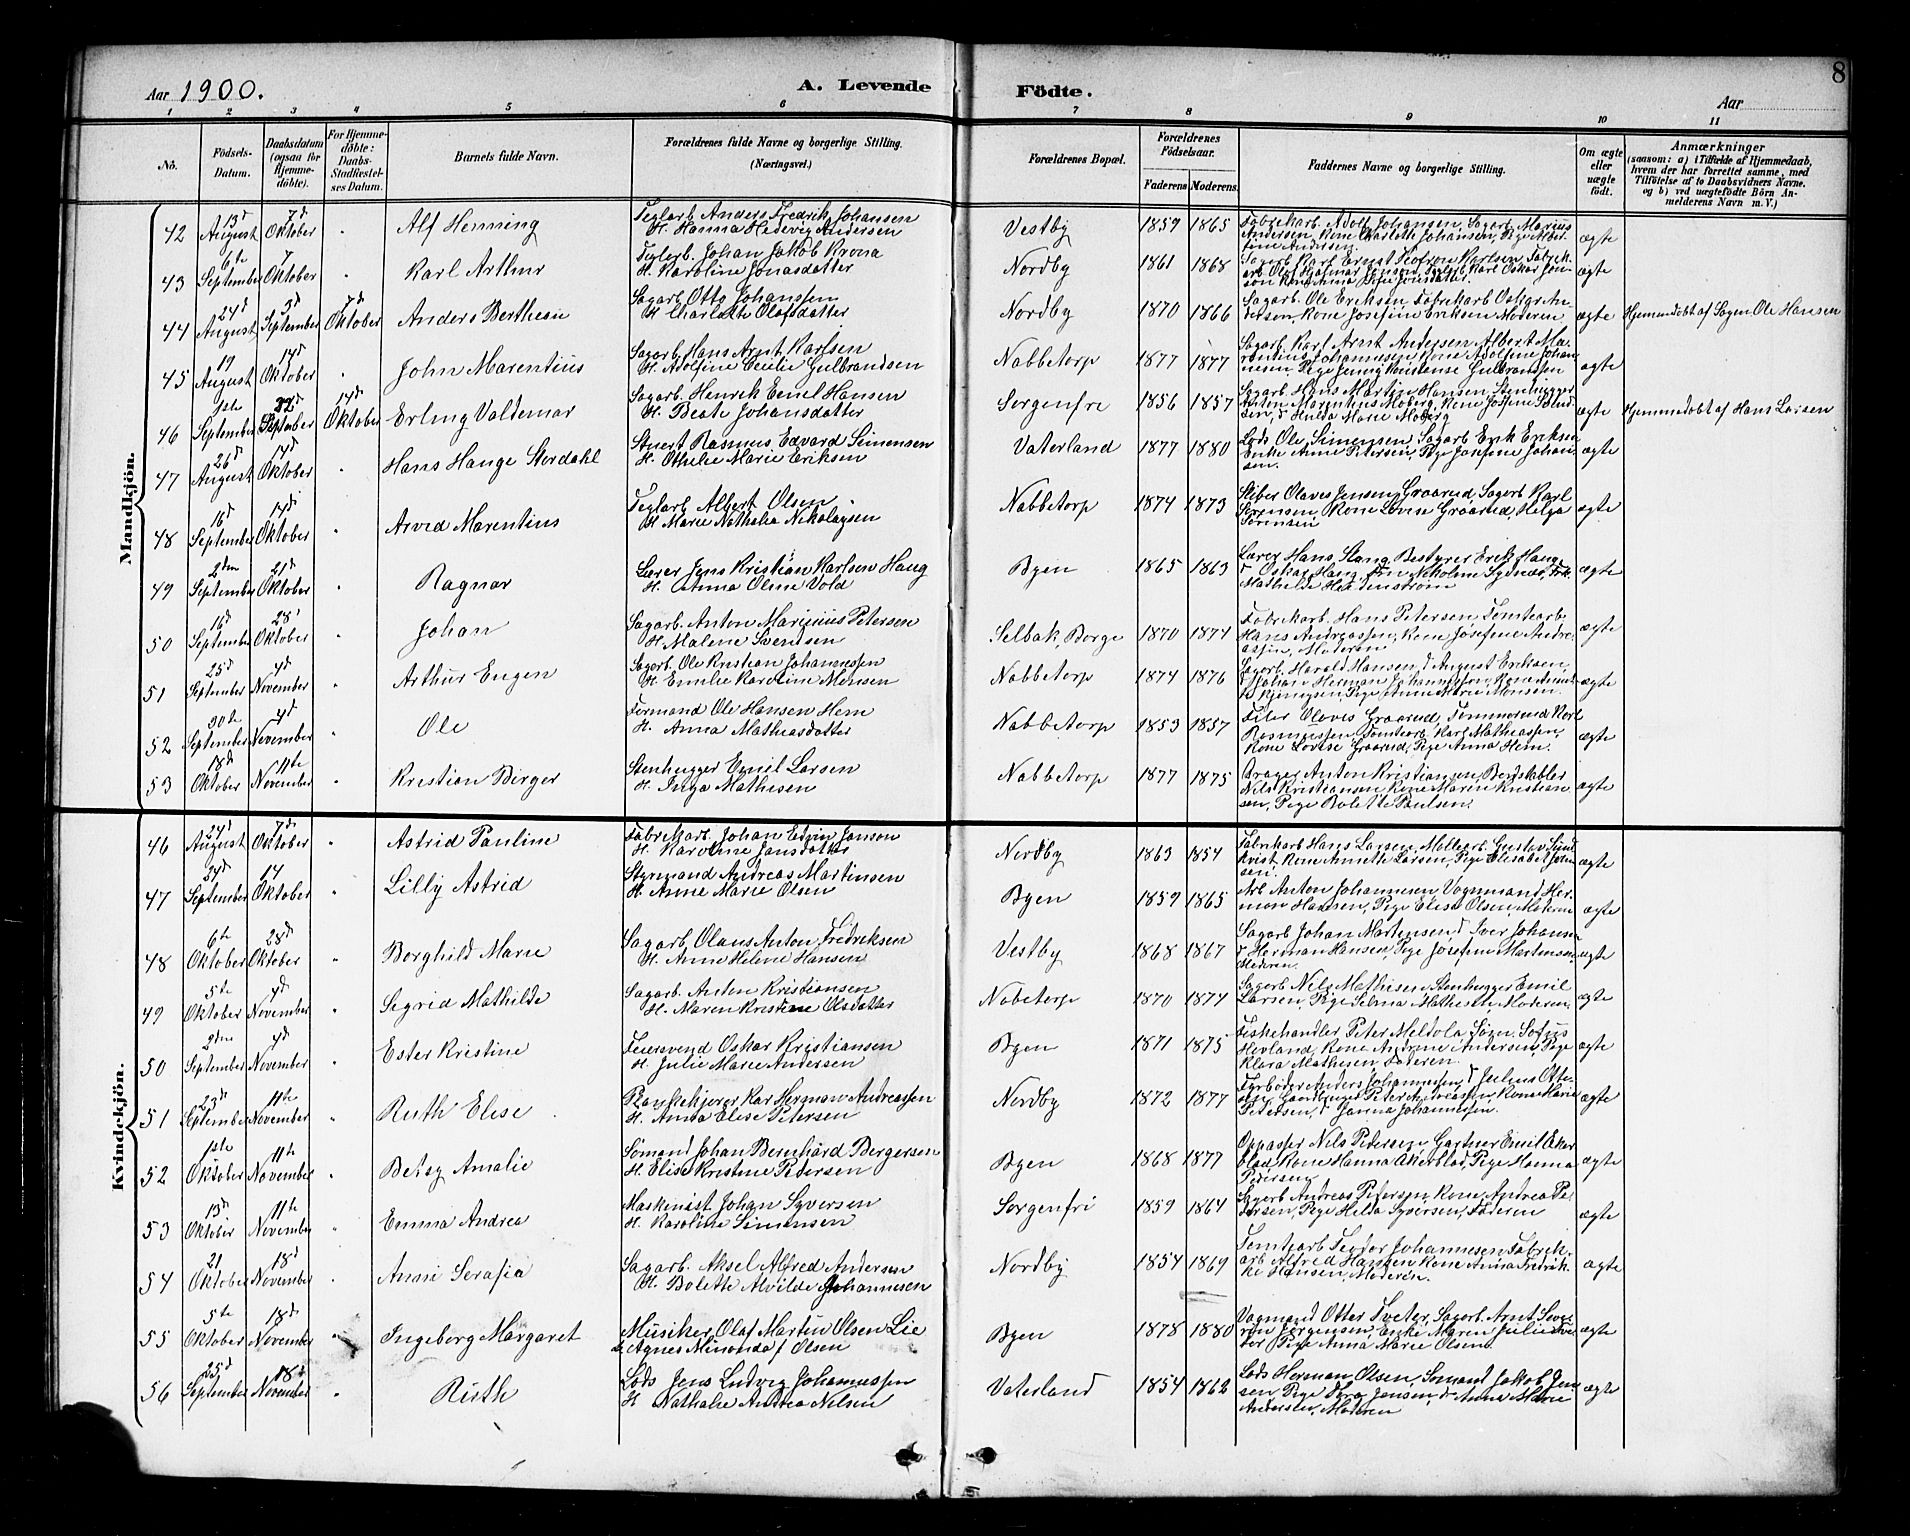 8
Aar 1900. A. Levende Födte. Aar
1 2 3 4 5 6 7 8 9 10 11
No. Födsels-Datum. Daabsdatum (ogsaa for Hjemme-döbte). For Hjemme-döbte: Daabs-Stadfæstel-ses Datum. Barnets fulde Navn. Forældrenes fulde Navne og borgerlige Stilling. (Næringsvei.) Forældrenes Bopæl. Forældrenes Födselsaar. Faderens Moderens. Faddernes Navne og borgerlige Stilling. Om ægte eller uægte födt. Anmærkninger (saasom: a) i Tilfælde af Hjemmedaab, hvem der har forrettet samme, med Tilföielse af to Daabsvidners Navne, og b) ved uægtefödte Börn An-melderens Navn m. V.)
Mandkjön.
42 13d August 7d Oktober " Alf Henning Teglarb. Anders Fredrik Johansen H. Hanna Hedevig Andersen Vestby 1859 1865 Fabrikarb. Adolf Johansen, Sagarb. Marius Andersen, Kone Charlotte Johansen, Pige Andersen. ægte
43 6te September 7 Oktober " Karl Arthur Teglarb. Johan Jakob Krona H. Karoline Jonasdatter Nordby 1861 1868 Sagarb. Karl Ernst Karlsen, Fabrikarb. Olof Hjalmar Jonsen, Teglarb. Karl Oskar Jonson Kone Anna ægte
44 24d August 3d September 7d Oktober Anders Bertheau Sagarb. Otto Johanssen H. Charlotte Olafsdatter Nordby 1870 1866 Sagarb. Ole Eriksen, Fabrikarb. Oskar Andersen, Kone Josefine Eriksen Moderen ægte Hjemmedøbt af Sogn. Ole Hansen
45 19 August 14d Oktober " John Marentius Sagarb. Hans Arnt Karlsen H. Adolfine Cecilie Gulbrandsen Nabbetorp 1877 1877 Sagarb. Karl Arnt Andersen Albert Marentius Johannesen Kone Adolfine Johannesen, Pige Jenny Konstanse Gulbranssen ægte
46 1ste September September 14d Oktober Erling Valdemar Sagarb. Henrik Emil Hansen H. Beate Johansdatter Sorgenfre 1856 1857 Sagarb. Hans Martin Hansen, Stenhugger Anton Marentius Moberg, Kone Josefine Hulda Marie Moberg ægte Hjemmedøbt af Hans Larsen
47 26d August 14d Oktober " Hans Hauge Stordahl Stuert Rasmus Edvard Simensen H. Othelie Marie Eriksen Vaterland 1877 1880 Lods Ole Simensen, Sagarb. Erik Eriksen Enke Anne Petersen, Pige Josefine Johansen. ægte
48 16d September 14d Oktober " Arved Marentius Teglarb. Albert Olsen H. Marie Nathalia Nikolaysen Nabbetorp 1874 1873 Olaves Jensen Graarud, Sagarb. Karl Sørensen, Kone Lovise Graarud, Helga Sørensen ægte
49 2den September 21d Oktober " Ragnar Lærer Jens Kristian Karlsen Haug H. Anna Oline Vold Byen 1865 1863 Lærer Hans Stang, Bestyrer Erik Haug, Oskar Haug, Mathilde ægte
50 16d September 28d Oktober " Johan Sagarb. Anton Marinius Petersen H. Malene Svendsen Selbak, Borge 1870 1874 Fabrikarb. Hans Petersen, Tomtearb. Hans Andreassen, Kone Josefine Andreassen, Moderen ægte
51 25d September 4d November " Arthur Eugen Sagarb. Ole Kristian Johannessen H. Emilie Karoline Monsen Nabbetorp 1874 1876 Sagarb. Harald Hansen, August Eriksen, Johan Herman Johannessen, Kone Pige Anne Marie Monsen. ægte
52 30te September 4d November " Ole Formand Ole Hansen Hem H. Anna Mathiasdatter Nabbetorp 1853 1857 Filer Olaves Graarud, Tømmermd Karl Rasmussen, Tomtearb. Karl Mathiassen, Kone Lovise Graarud, Pige Anna Hem. ægte
53 18d Oktober 11te November " Kristian Birger Stenhugger Emil Larsen H. Inga Mathisen Nabbetorp 1877 1875 Drager Anton Kristiansen, Bordstabler Nils Kristiansen, Kone Maren Kristiansen, Pige Bolette Paulsen. ægte
Kvindekjön.
46 24d August 7d Oktober " Astrid Pauline Fabrikarb. Johan Edvin Janson H. Karoline Jansdatter Nordby 1863 1854 Fabrikarb. Hans Larsen, Møllearb. Gustav Sundkvist, Kone Annette Larsen, Pige Elisabet ægte
47 September 14 Oktober " Lilly Astrid Styrmand Andreas Martinsen H. Anne Marie Olsen Byen 1859 1865 Arb. Anton Johannesen, Vognmand Herman Hansen, Pige Elise Olsen, Moderen ægte
48 6te Oktober 28d Oktober " Borghild Marie Sagarb. Olaus Anton Fredriksen H. Anne Helene Hansen Vestby 1868 1867 Sagarb. Johan Martinsen, Iver Johansen Herman Hansen, Pige Josefine Martensen, Moderen. ægte
49 5te Oktober 4d November " Sigrid Mathilde Sagarb. Anton Kristiansen H. Maren Kristine Olsdatter Nabetorp 1870 1874 Sagarb. Nils Mathisen, Stenhugger Emil Larsen, Pige Selma Mathisen, Moderen. ægte
50 2den September 4d November Ester Kristine Feiersvend Oskar Kristiansen H. Julie Marie Andersen Byen 1871 1875 Fiskehandler Peter Meldola, Søgn. Sofus Hovland, Kone Andrine Andersen, Pige Klara Mathisen, Faderen. ægte
51 23d September 11te November " Ruth Elise Plankekjører Karl Herman Andreassen H. Anna Elise Petersen Nordby 1872 1877 Fyrbøder Anders Johannesen, Julius Peter Andreassen, Kone Marie Petersen, Janna Johannessen. ægte
52 1ste Oktober 11te November " Betsy Amalie Sømand Johan Bernhard Bergersen H. Elise Kristine Pedersen Byen 1868 1877 Oppasser Nils Pedersen, Gartner Emil Akerblad, Kone Hanna Akerblad, Pige Hanna Pedersen ægte
53 13d Oktober 11te November " Emma Andrea Maskinist Johan Syversen H. Karoline Simensen Sorgenfri 1859 1864 Sagarb. Andreas Petersen, Kone Andrea Petersen, Pige Helda Syversen, Faderen ægte
54 21 Oktober 18d November " Anni Serafia Sagarb. Aksel Alfred Andersen H. Bolette Alvilde Johannesen Nordby 1854 1869 Tomtearb. Teodor Johannesen, Fabrikarb. Alfred Hansen, Kone Anna Fredrikke Hansen, Moderen. ægte
55 5te Oktober 18d November " Ingeborg Margaret Musiker Olaf Martin Olsen Lie H. Agnes Minonda f. Olsen Byen 1878 1880 Vognmand Otter Tveter, Sagarb. Arnt Severin Jørgensen, Enke Maren Julie Tveter, Pige Anna Marie Olsen. ægte
56 25d September 18d November " Ruth Lods Jens Ludvig Johannessen H. Nathalie Andrea Nilsen Vaterland 1854 1862 Lods Herman Olsen, Sømand Jakob Jensen, Pige Thora Jensen, Anna Marie Andersen, Moderen ægte